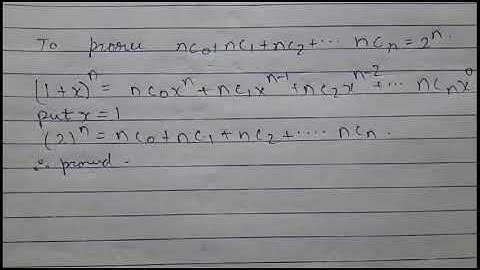 To prove nc₀+nc₁+nc₂+⋯ ncₙ=2ⁿ.
(1+x)ⁿ= nc₀xⁿ+nc₁xⁿ⁻¹+nc₂xⁿ⁻²+⋯ ncₙx⁰
put x=1
(2)ⁿ=nc₀+nc₁+nc₂+⋯⋅ ncₙ.
∴ proved.